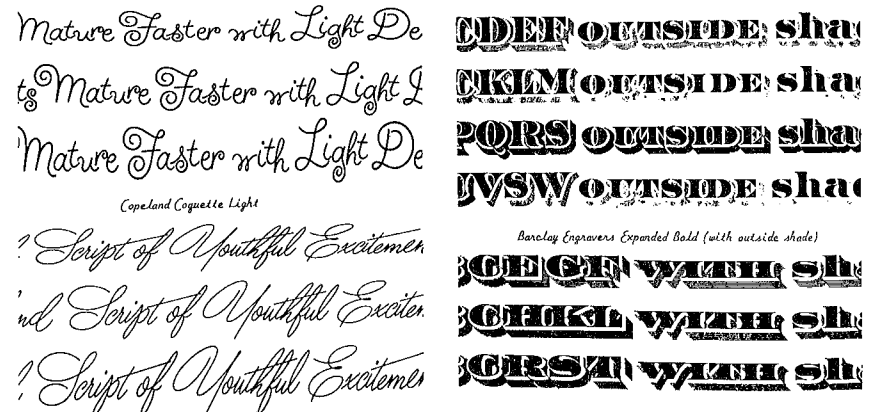 Mature Faster with Light De
ts Mature Faster with Light D
Mature Faster with Light De
Copeland Coquette Light
? Script of Youthful Excitemen
nd Script of Youthful Excitem
? Script of Youthful Excitemen
CDEF OUTSIDE sha
CKLM OUTSIDE sha
PQRS OUTSIDE sha
UVSW OUTSIDE shad
Barclay Engravers Expanded Bold (with outside shade)
WITH sh
WITH sh
WITH sh